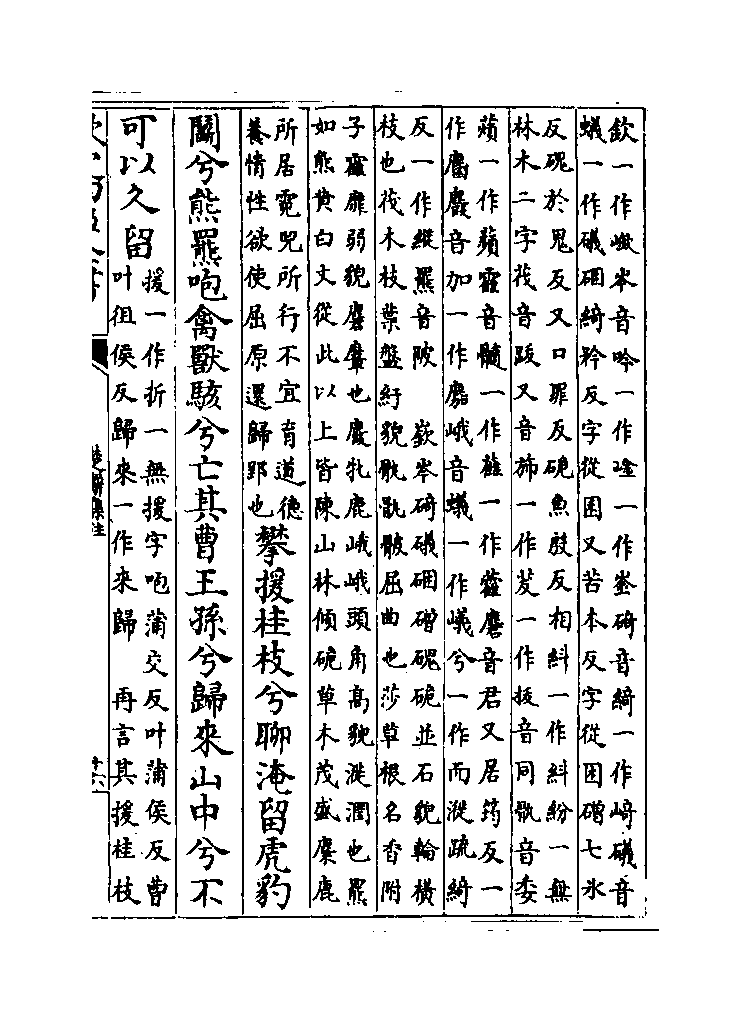 欽一作嶔岑音吟一作崟一作峑碕音綺一作崎礒音
蟻一作礒硱綺矜反字從困又苦本反字從困磳七氷
反磈於鬼反又口罪反硊魚毀反相紏一作糾紛一無
林木二字茷音跋又音斾一作茇一作拔音同骩音委
薠一作蘋靃音髓一作蓶一作虇麏音君又居筠反一
作麕麚音加一作麍峨音蟻一作嶬兮一作而漇疏綺
反一作縰羆音陂　嶔岑碕礒硱磳磈硊並石貌輪橫
枝也茷木枝葉盤紆貌骫骳屈曲也莎草根名香附
子靃靡弱貌麏麞也麚牝鹿峨峨頭角高貌漇潤也羆
如熊黄白文從此以上皆陳山林傾硊草木茂盛麋鹿
所居虎兕所行不宜育道德
養情性欲使屈原還歸郢也
攀援桂枝兮聊淹留虎豹
鬬兮熊羆咆禽獸駭兮亡其曹王孫兮歸來山中兮不
可以久留
援一作折一無援字咆蒲交反叶蒲侯反曹
叶徂侯反歸來一作來歸　再言其援桂枝
楚辭集注